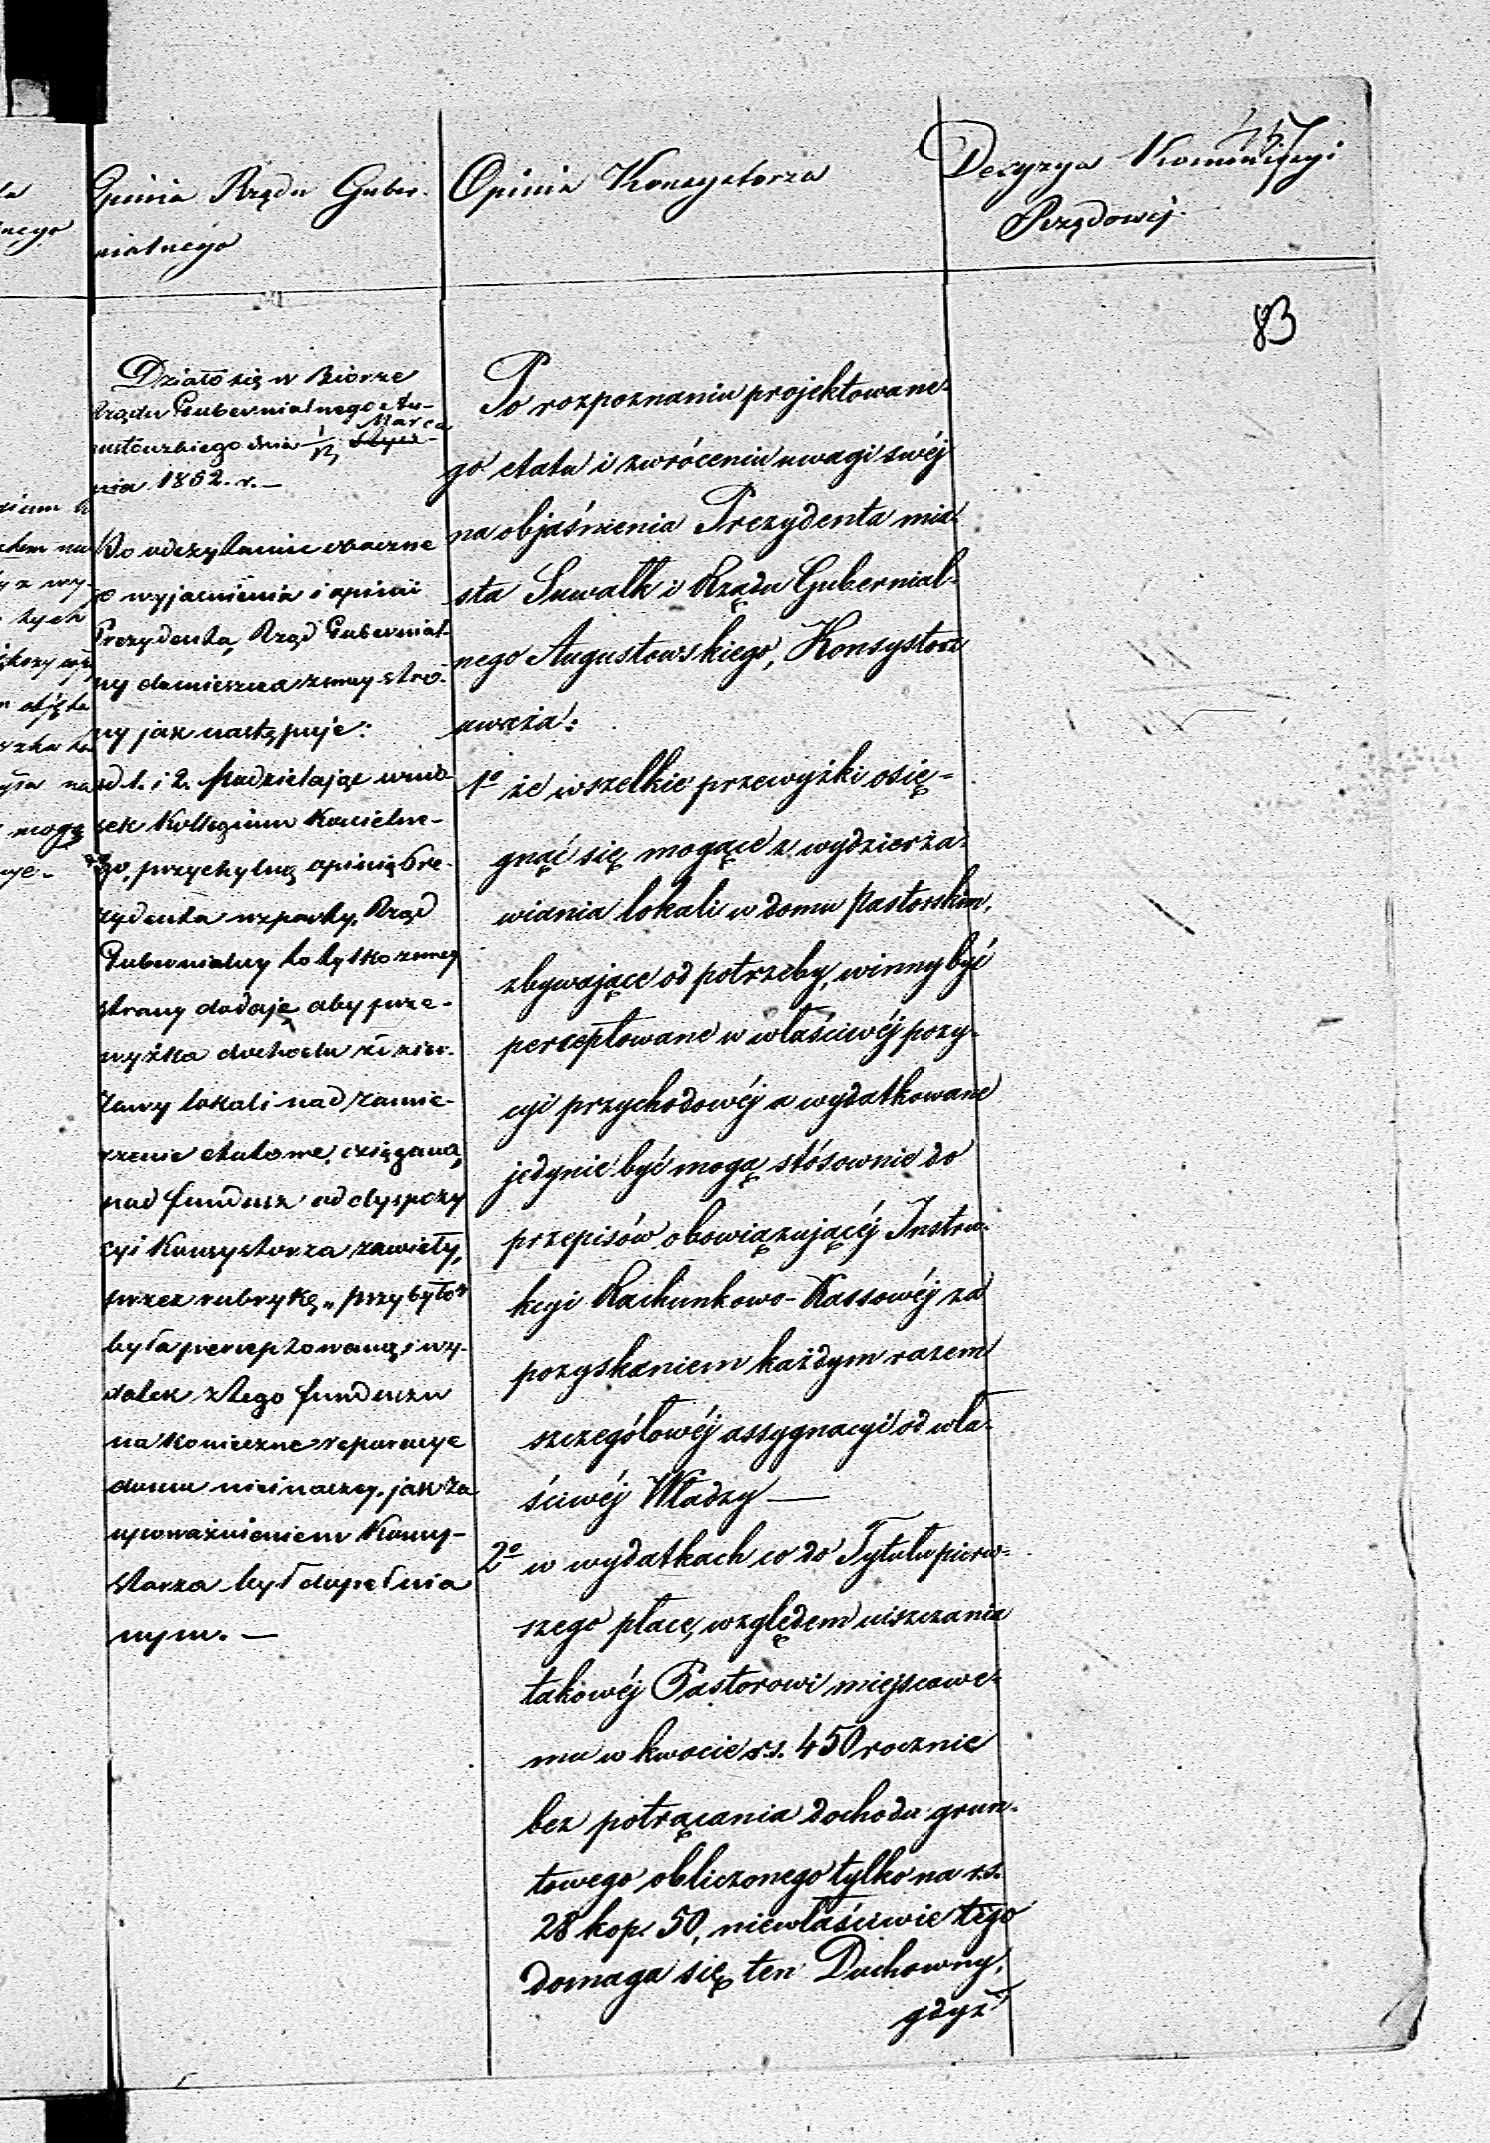 457
Opinia Rządu Guber-
nialnego
Opinia Konsystorza
Decyzya Kommissyi
Rządowéj.
83
Działo się w Biórze
Rządu Gubernialnego Au-
Marca
gustowskiego dnia 1/13 Stycz-
nia 1852. r. —
Po odczytaniu obaczne
go wyjaśnienia i opinii
Prezydenta, Rząd Gubernial-
ny domieszcza z swey stro-
ny jak następuje:
ad 1. i 2. Podzielając wnio-
sek Kollegium Kościelne-
go, przychylną opinią Pre-
zydenta wsparty, Rząd
Gubernialny to tylko z swey
strony dodaje aby prze-
wyżka dochodu z dzier-
żawy lokali nad zamie-
rzenie etatowe, ściągana,
nad fundusz od dyspozy
cyi Konsystorza zawisły,
przez rubrykę „przybyło"
była perceptowaną, i wy-
datek z tego funduszu
na konieczne reparacye
domu nieinaczey jak za
upoważnieniem Konsy-
storza był dopełnia
nym. —
Po rozpoznaniu projektowane-
go etatu i zwróceniu uwagi swéj
na objaśnienia Prezydenta mia-
sta Suwałk i Rządu Gubernial-
nego Augustowskiego, Konsystorz
uważa:
1o że wszelkie przewyżki osię-
gnąć się mogące z wydzierża-
wiania lokali w domu Pastorskim,
zbywające od potrzeby, winny być
perceptowane w właściwéj pozy-
cyi przychodowéj a wydatkowane
jedynie być mogą stósownie do
przepisów obowiązującéj Instru-
kcyi Rachunkowo-Kassowéj za
pozyskaniem każdym razem
szczegółowéj assygnacyi od wła-
ściwéj Władzy —
2o w wydatkach co do Tytułu pierw-
szego płace, względem uiszczania
takowéj Pastorowi miejscowe-
mu w kwocie r.s. 450 rocznie
bez potrącania dochodu grun-
towego obliczonego tylko na r.s.
28 kop. 50, niewłaściwie tego
domaga się ten Duchowny,
gdyż